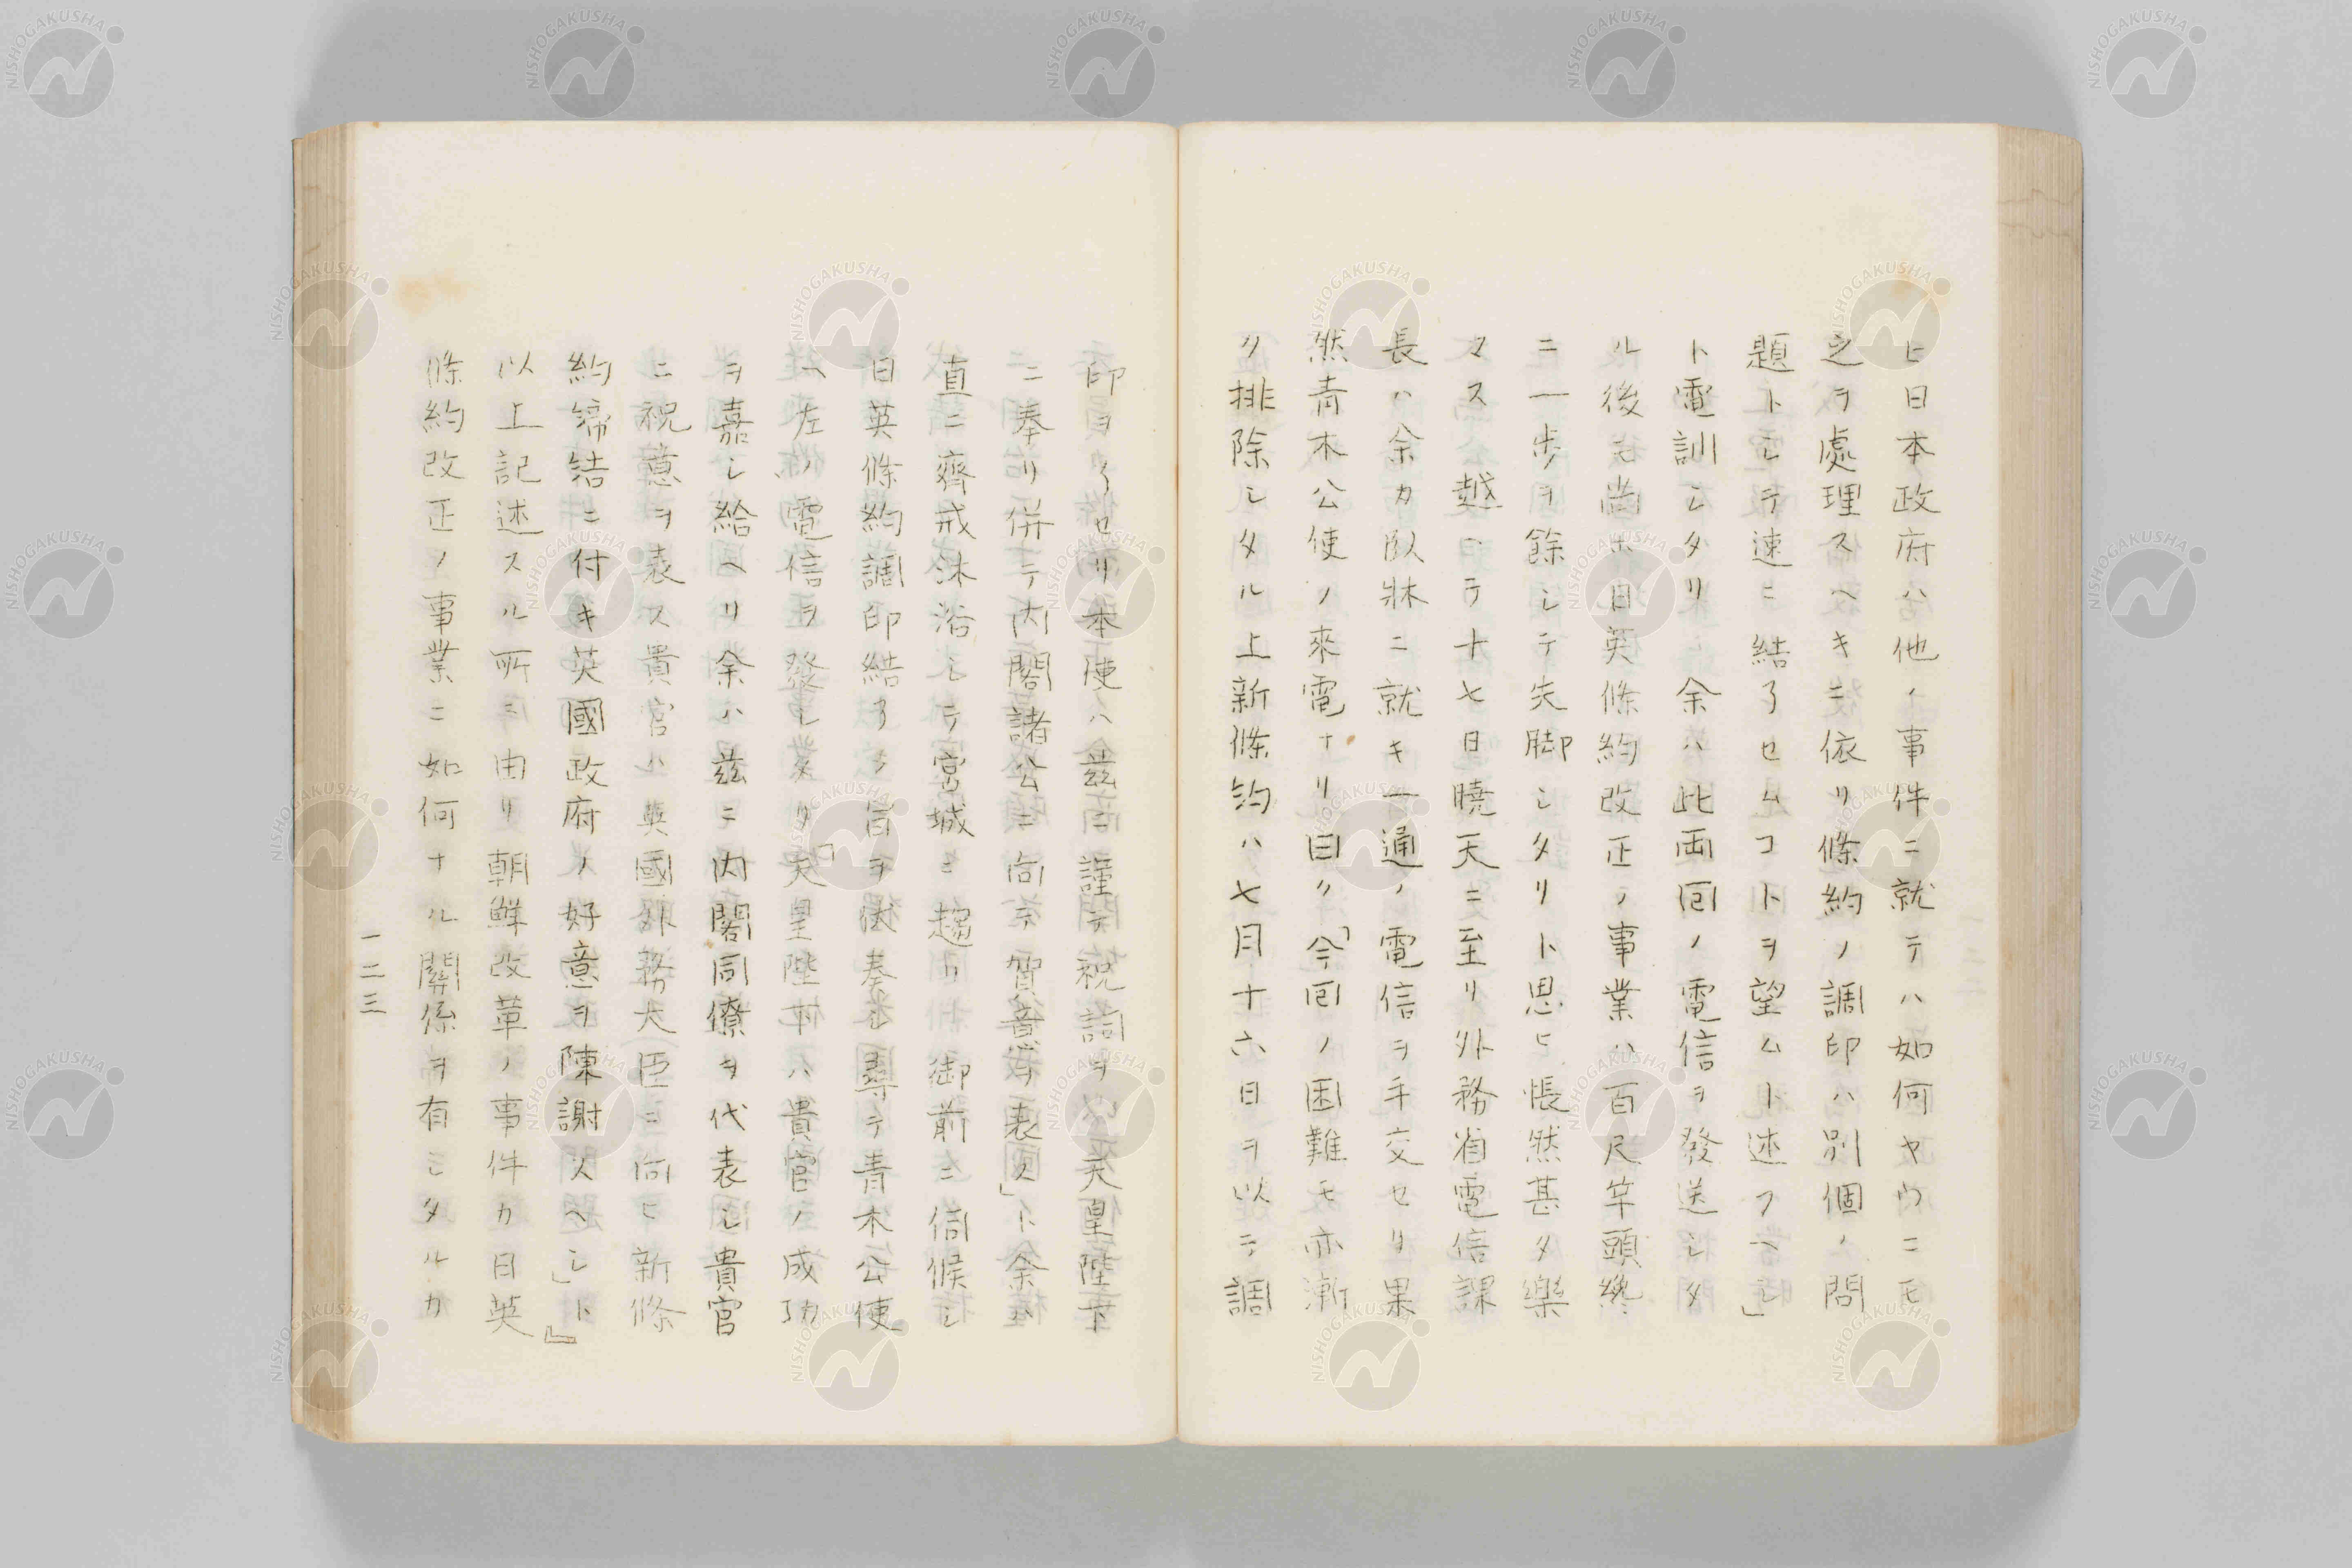 ヒ日本政府ハ他ノ事件ニ就テハ如何ヤウニモ
之ヲ處理スヘキニ依リ條約ノ調印ハ別個ノ問
題トシテ速ニ結了セムコトヲ望ムト述フヘシ」
ト電訓シタリ 余ハ此両囘ノ電信ヲ發送シタ
ル後モ尚ホ日英條約改正ノ事業ハ百尺竿頭終
ニ一歩ヲ餘シテ失脚シタリト思ヒ悵然甚タ樂
マス 越ヘテ十七日曉天ニ至リ外務省電信課
長ハ余カ臥牀ニ就キ一通ノ電信ヲ手交セリ果
然青木公使ノ來電ナリ曰ク「今囘ノ困難モ亦漸
ク排除シタル上新條約ハ七月十六日ヲ以テ調
印ヲ了セリ本使ハ茲ニ謹テ祝詞ヲ以天皇陛下
ニ奉リ併テ内閣諸公ニ向テ賀意ヲ表ス」ト余ハ
直ニ齊戒沐浴シテ宮城ニ趨リ御前ニ伺候シ
日英條約調印結了ヲ旨ヲ伏奏シ尋テ青木公使
ヘ左ノ電信ヲ發シタ「天皇陛下ハ貴官ノ成功
ヲ嘉シ給ヘリ余ハ茲ニ内閣同僚ヲ代表シ貴官
ニ祝意ヲ表ス貴官ハ英國外務大臣ニ向ヒ新條
約締結ニ付キ英國政府ノ好意ヲ陳謝スヘシ」ト』
以上記述スル所ニ由リ朝鮮改革ノ事件カ日英
條約改正ノ事業ニ如何ナル關係ヲ有シタルカ
一二三
NISHOGAKUSHA